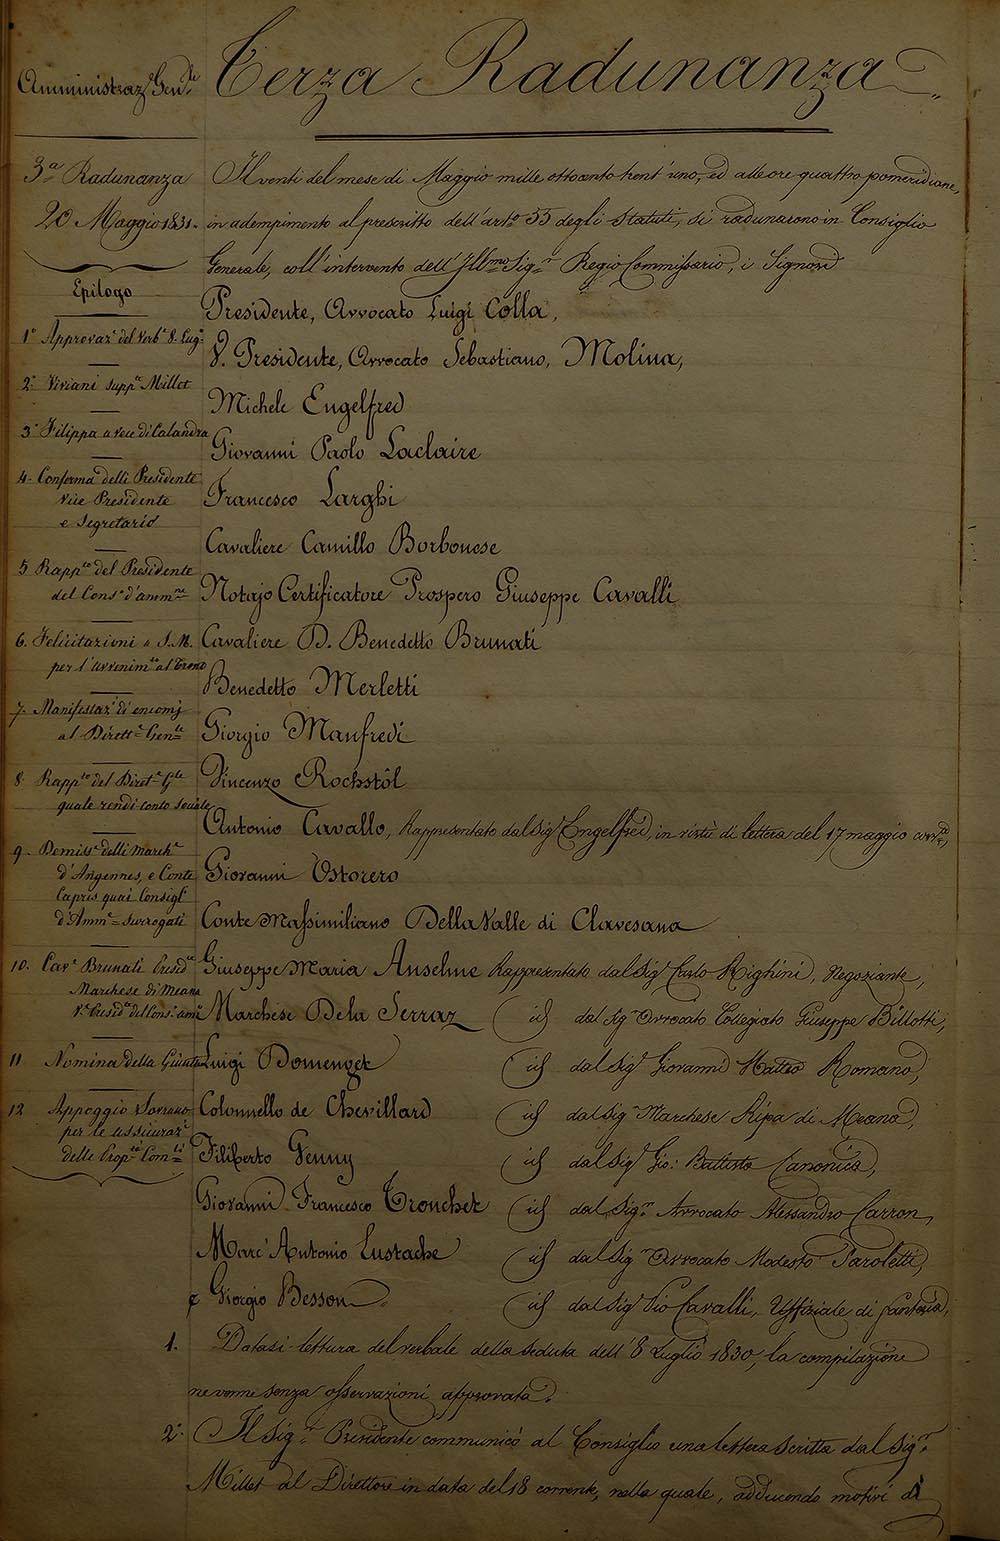 Amministraz. Gen.le
Terza Radunanza
3a Radunanza
20 Maggio 1831.
Epilogo
1° Approvaz.e del Verb.e 8. Lug.o
2° Viviani supp.te Millet
3° Filippa a vece di Calandra
4. Conferma delli Presidente
Vice Presidente
e Segretario
5 Rapp.to del Presidente
del Cons.o d'amm.ne
6. Felicitazioni a S.M.
per l'avvenim.to al trono
7. Manifestaz.i di encomj
al Dirett.e Gen.le
8. Rapp.to del Diret.e G.le
quale rendi-conto sociale
9. Demiss.e delli March.e
d'Angennes, e Conte
Capris quai Consigl.i
d'Amm.e surrogati
10. Cav.e Brunati Presid.te
Marchese di Meana
V.e Presid.te del Cons.o amm.e
11 Nomina della Giunta
12 Appoggio Sovrano
per le assicuraz.i
delle Prop.tà Com.li
Il venti del mese di Maggio mille ottocento trent'uno, ed alle ore quattro pomeridiane,
in adempimento al prescritto dell'art.o 55 degli statuti, si radunarono in Consiglio
Generale, coll'intervento dell'Ill.mo Sig.r Regio Commissario, i Signori
Presidente, Avvocato Luigi Colla,
V. Presidente, Avvocato Sebastiano, Molina,
Michele Engelfred
Giovanni Paolo Laclaire
Francesco Larghi
Cavaliere Camillo Borbonese
Notajo Certificatore Prospero Giuseppe Cavalli
Cavaliere D. Benedetto Brunati
Benedetto Merletti
Giorgio Manfredi
Vincenzo Rochstôl
Antonio Cavallo, Rappresentato dal Sig.r Engelfred, in virtù di lettera del 17 maggio corr.te
Giovanni Ostorero
Conte Massimiliano Della Valle di Clavesana
Giuseppe Maria Anselme Rappresentato dal Sig.r Carlo Righini, Negoziante,
Marchese De la Serraz (id dal Sig.r Avvocato Collegiato Giuseppe Billotti,
Luigi Domenget (id dal Sig.r Giovanni Matteo Romano,
Colonnello de Chevillard (id dal Sig.r Marchese Ripa di Meana,
Filiberto Genny (id dal Sig.r Gio: Battista Canonica,
Giovanni Francesco Tronchet (id dal Sig.r Avvocato Alessandro Carron,
Marc'Antonio Eustache (id dal Sig.r Avvocato Modesto Paroletti,
e Giorgio Besson (id dal Sig.r Pio Cavalli, Uffiziale di fanteria,
1. Datasi lettura del verbale della seduta dell'8 Luglio 1830, la compilazione
ne venne senza osservazioni approvata.
2° Il Sig.r Presidente communicò al Consiglio una lettera scritta dal Sig.r
Millet al Direttore in data del 18 corrente, nella quale, adducendo motivi di